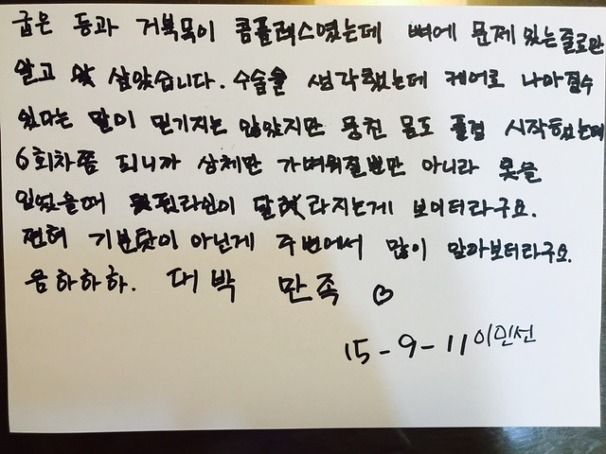 굽은 등과 거북목이 콤플렉스였는데 뼈에 문제 있는줄로만
알고 살았습니다. 수술을 생각했는데 케어로 나아질수
있다는 말이 믿기지는 않았지만 몸도 풀겸 시작했는데
6회차쯤 되니까 상체만 가벼워질뿐만 아니라 옷을
입었을때 핏라인이 달라지는게 보이더라구요.
전혀 기분탓이 아닌게 주변에서 많이 알아보더라구요.
음하하하. 대박 만족 ♡
15-9-11 이민선